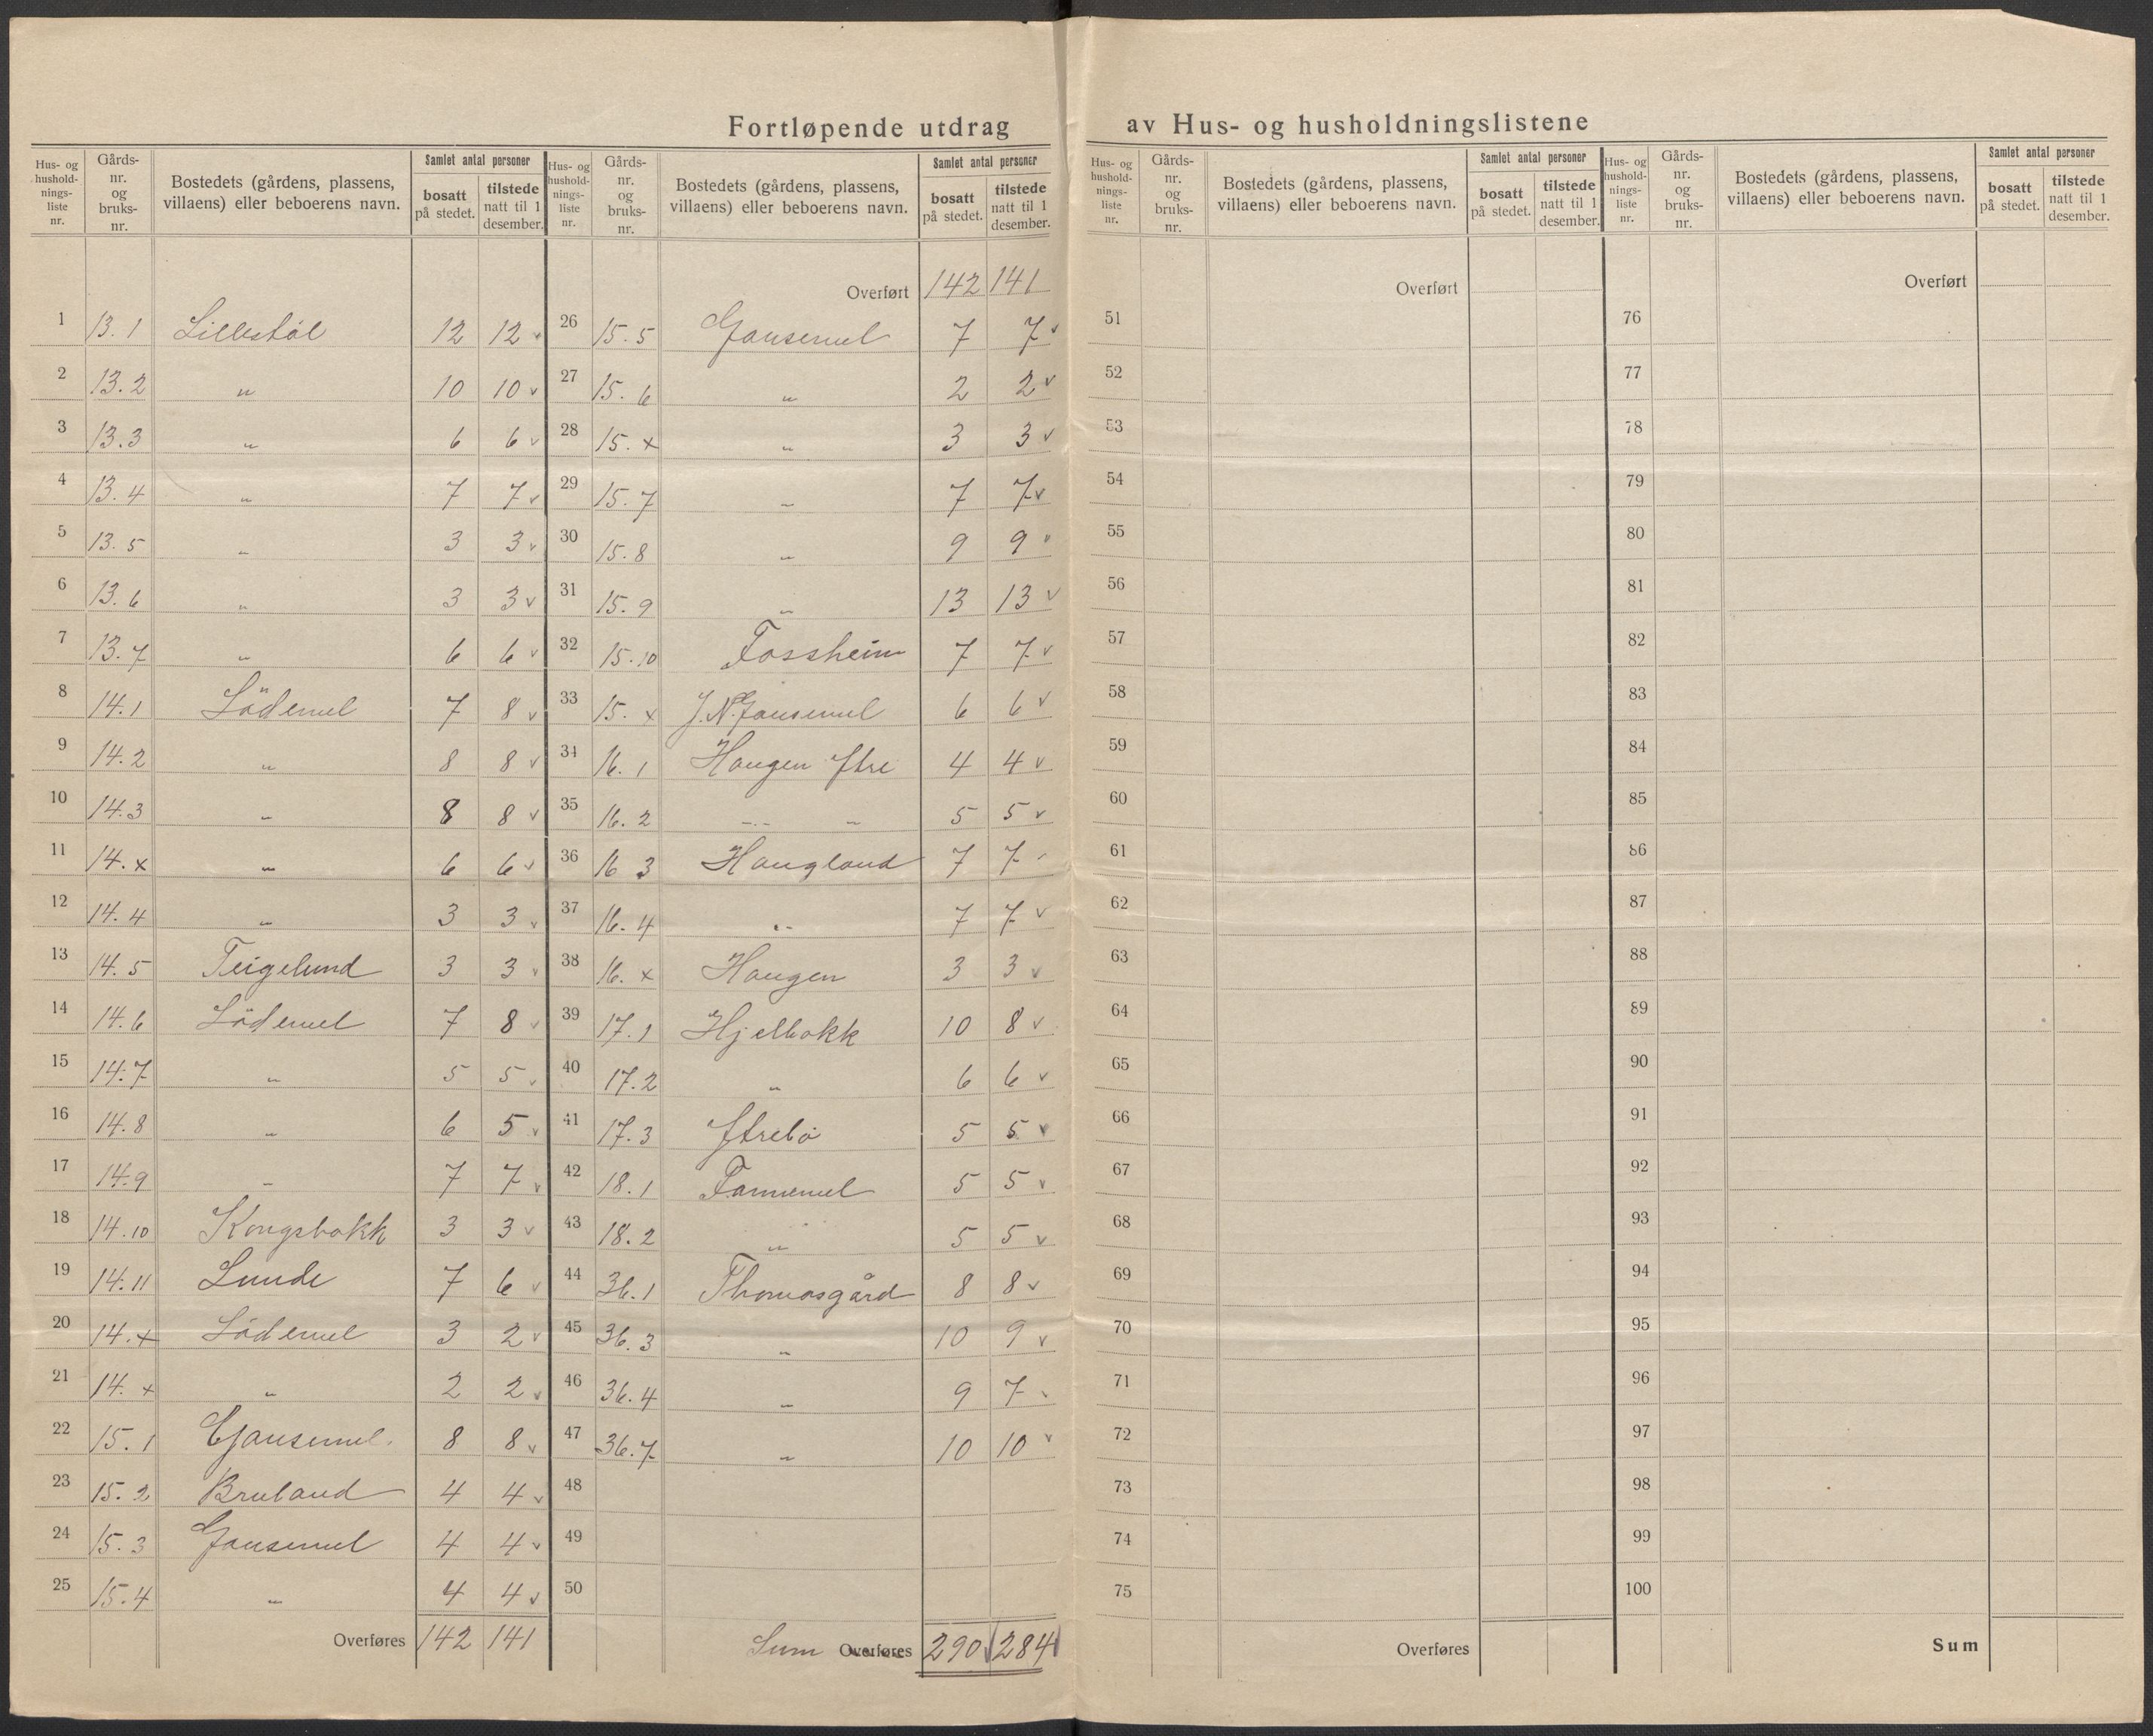 Fortløpende utdrag av Hus- og husholdningslistene
Hus- og husholdnings-liste nr. Gårds-nr. og bruks-nr. Bostedets (gårdens, plassens, villaens) eller beboerens navn. Samlet antal personer bosatt på stedet. tilstede natt til 1 desember.
1 13.1 Lillestøl 12 12 v
2 13.2 " 10 10 v
3 13.3 " 6 6 v
4 13.4 " 7 7 v
5 13.5 " 3 3 v
6 13.6 " 3 3 v
7 13.7 " 6 6 v
8 14.1 Lödemel 7 8 v
9 14.2 " 8 8 v
10 14.3 " 8 8 v
11 14.x " 6 6 v
12 14.4 " 3 3 v
13 14.5 Teigelund 3 3 v
14 14.6 Lödemel 7 8 v
15 14.7 " 5 5 v
16 14.8 " 6 5 v
17 14.9 " 7 7 v
18 14.10 Kongsbakk 3 3 v
19 14.11 Lunde 7 6 v
20 14.x Lödemel 3 2 v
21 14.x " 2 2 v
22 15.1 Gausemel. 8 8 v
23 15.2 Bruland 4 4 v
24 15.3 Gausemel 4 4 v
25 15.4 " 4 4 v
Overføres 142 141
Hus- og husholdnings-liste nr. Gårds-nr. og bruks-nr. Bostedets (gårdens, plassens, villaens) eller beboerens navn. Samlet antal personer bosatt på stedet. tilstede natt til 1 desember.
Overført 142 141
26 15.5 Gausemel 7 7 v
27 15.6 " 2 2 v
28 15.x " 3 3 v
29 15.7 " 7 7 v
30 15.8 " 9 9 v
31 15.9 " 13 13 v
32 15.10 Fossheim 7 7 v
33 15.x J.N. Gausemel 6 6 v
34 16.1 Haugen Ytre 4 4 v
35 16.2 " " 5 5 v
36 16 3 Haugland 7 7 v
37 16.4 " 7 7 v
38 16.x Haugen 3 3 v
39 17.1 Hjelbakk 10 8 v
40 17.2 " 6 6 v
41 17.3 Ytrebø 5 5 v
42 18.1 Fannemel 5 5 v
43 18.2 " 5 5 v
44 36.1 Thomasgård 8 8 v
45 36.3 " 10 9 v
46 36.4 " 9 7 v
47 36.7 " 10 10 v
48
49
50
Sum Overføres 290 284
Hus- og husholdnings-liste nr. Gårds-nr. og bruks-nr. Bostedets (gårdens, plassens, villaens) eller beboerens navn. Samlet antal personer bosatt på stedet. tilstede natt til 1 desember.
Overført
51
52
53
54
55
56
57
58
59
60
61
62
63
64
65
66
67
68
69
70
71
72
73
74
75
Overføres
Hus- og husholdnings-liste nr. Gårds-nr. og bruks-nr. Bostedets (gårdens, plassens, villaens) eller beboerens navn. Samlet antal personer bosatt på stedet. tilstede natt til 1 desember.
Overført
76
77
78
79
80
81
82
83
84
85
86
87
88
89
90
91
92
93
94
95
96
97
98
99
100
Sum